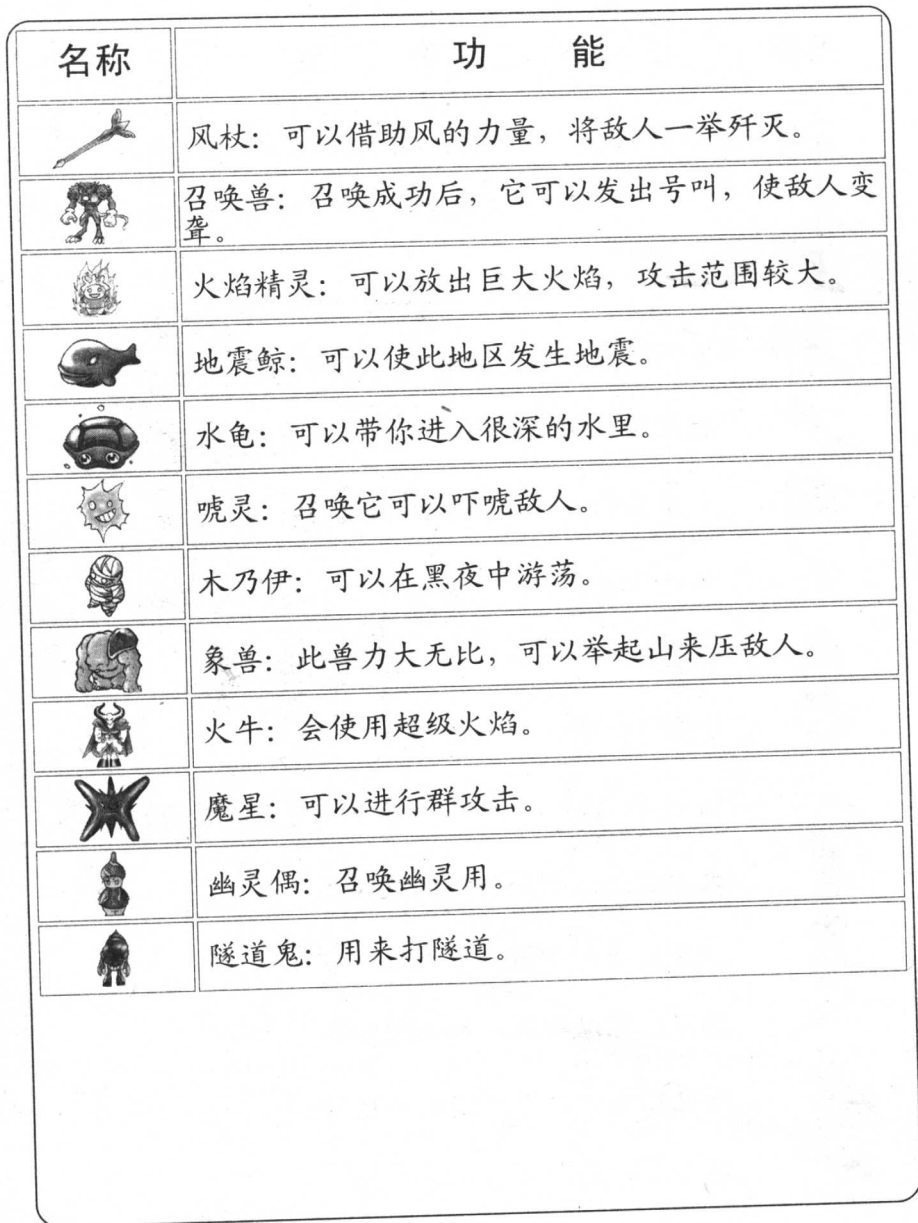 名称
功 能
风杖：可以借助风的力量，将敌人一举歼灭。
召唤兽：召唤成功后，它可以发出号叫，使敌人变
聋。
火焰精灵：可以放出巨大火焰，攻击范围较大。
地震鲸：可以使此地区发生地震。
水龟：可以带你进入很深的水里。
唬灵：召唤它可以吓唬敌人。
木乃伊：可以在黑夜中游荡。
象兽：此兽力大无比，可以举起山来压敌人。
火牛：会使用超级火焰。
魔星：可以进行群攻击。
幽灵偶：召唤幽灵用。
隧道鬼：用来打隧道。